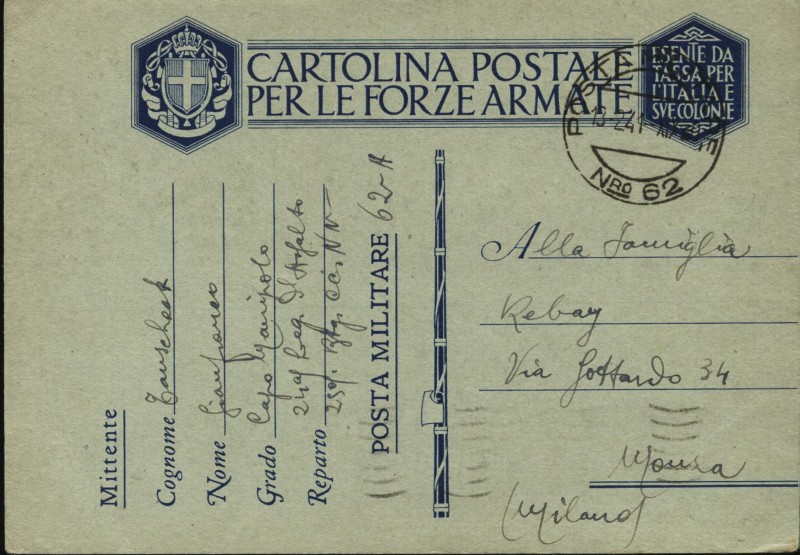 CARTOLINA POSTALE
PER LE FORZE ARMATE
ESENTE DA
TASSA PER
L'ITALIA E
SVE COLONIE
POSTA
13.2.41
Nro 62
Mittente
Cognome
Nome Gianfranco
Grado Capo Manipolo
Reparto Leg. D'Assalto
Btg. CC. NN.
POSTA MILITARE 62-A
Alla Famiglia
Rebay
Via Gottardo 34
Monza
(Milano)